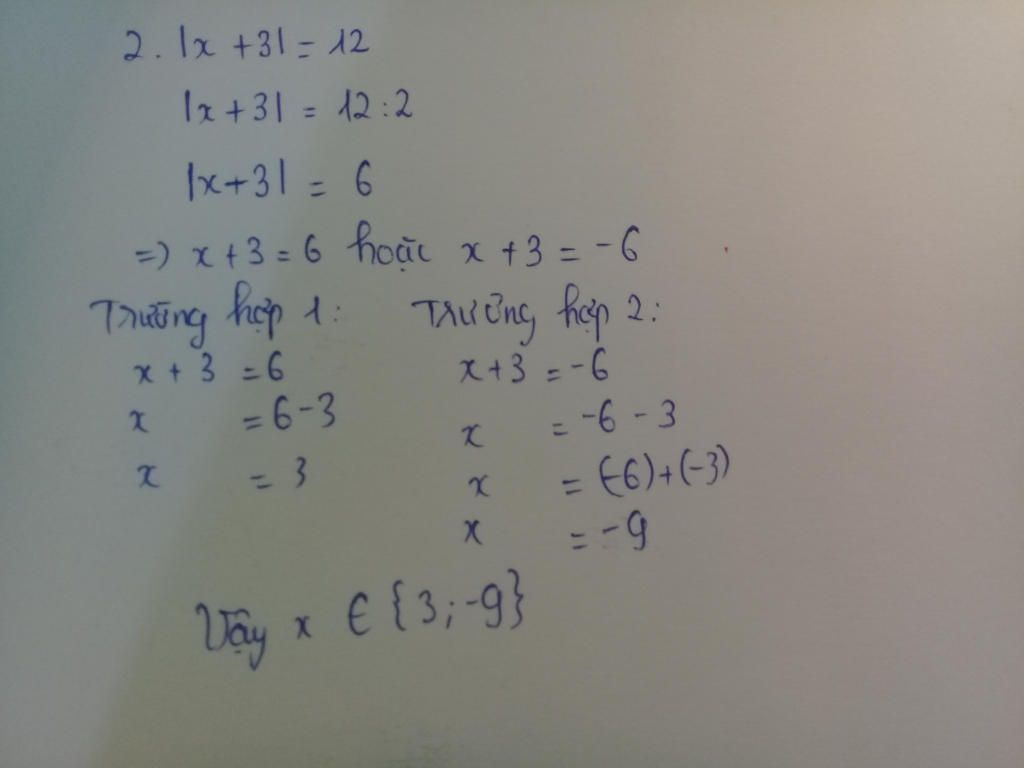 2. |x + 3| = 12
|x + 3| = 12 : 2
|x + 3| = 6
=> x + 3 = 6 hoặc x + 3 = -6
Trường hợp 1: Trường hợp 2:
x + 3 = 6 x + 3 = -6
x = 6 - 3 x = -6 - 3
x = 3 x = (-6) + (-3)
x = -9
Vậy x ∈ {3; -9}